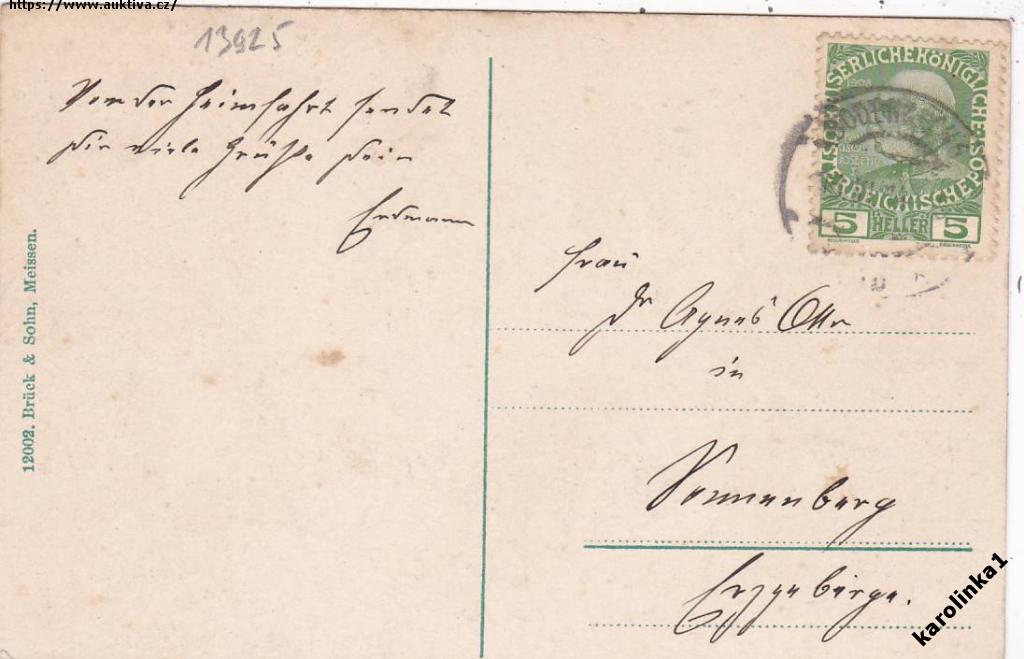 https://www.auktiva.cz/
13925
Von der Heimfahrt sendet
Dir viele Grüße Dein
Erdmann
12002. Brück & Sohn, Meissen.
KAISERLICHEKÖNIGLICHE ÖSTERREICHISCHE POST
5 HELLER 5
Frau
Dr Agnes Otto
in
Sonnenberg
Erzgebirge.
karolinka1